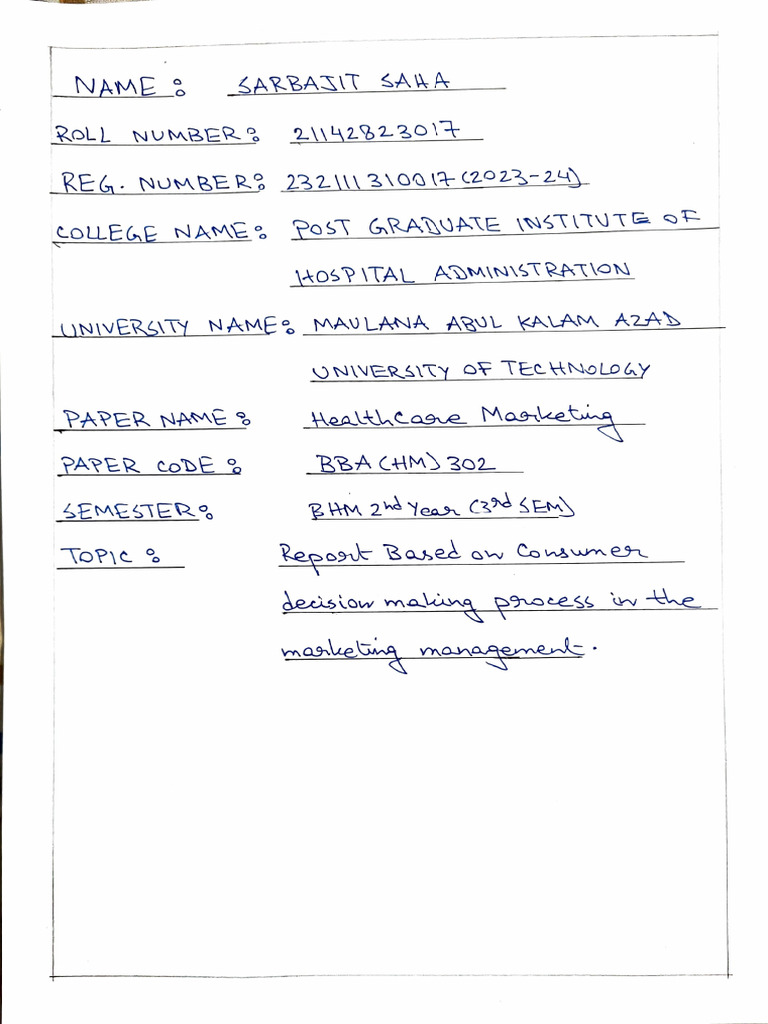 NAME: SARBAJIT SAHA
ROLL NUMBER: 21142823017
REG. NUMBER: 232111310017 (2023-24)
COLLEGE NAME: POST GRADUATE INSTITUTE OF
HOSPITAL ADMINISTRATION
UNIVERSITY NAME: MAULANA ABUL KALAM AZAD
UNIVERSITY OF TECHNOLOGY
PAPER NAME: HealthCare Marketing
PAPER CODE: BBA (HM) 302
SEMESTER: BHM 2nd Year (3rd SEM)
TOPIC: Report Based on Consumer
decision making process in the
marketing management.